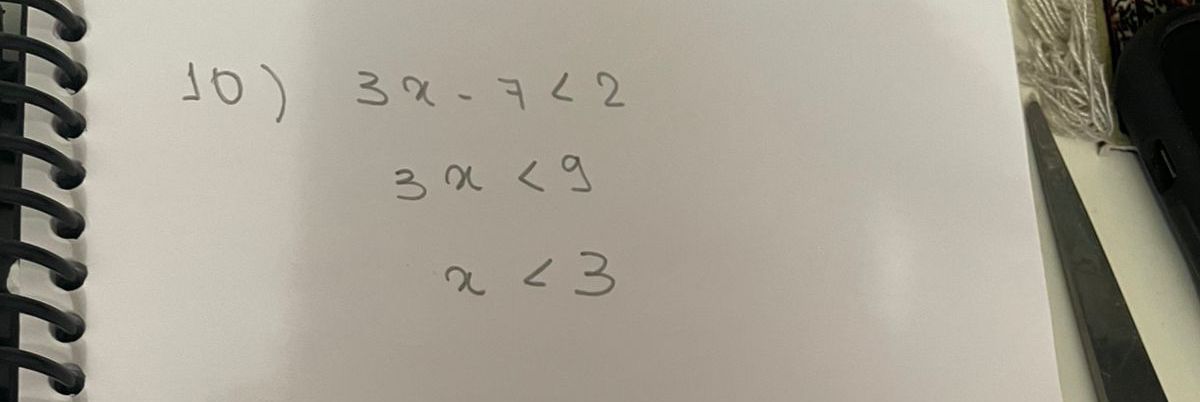 10) 3x - 7 < 2
3x < 9
x < 3